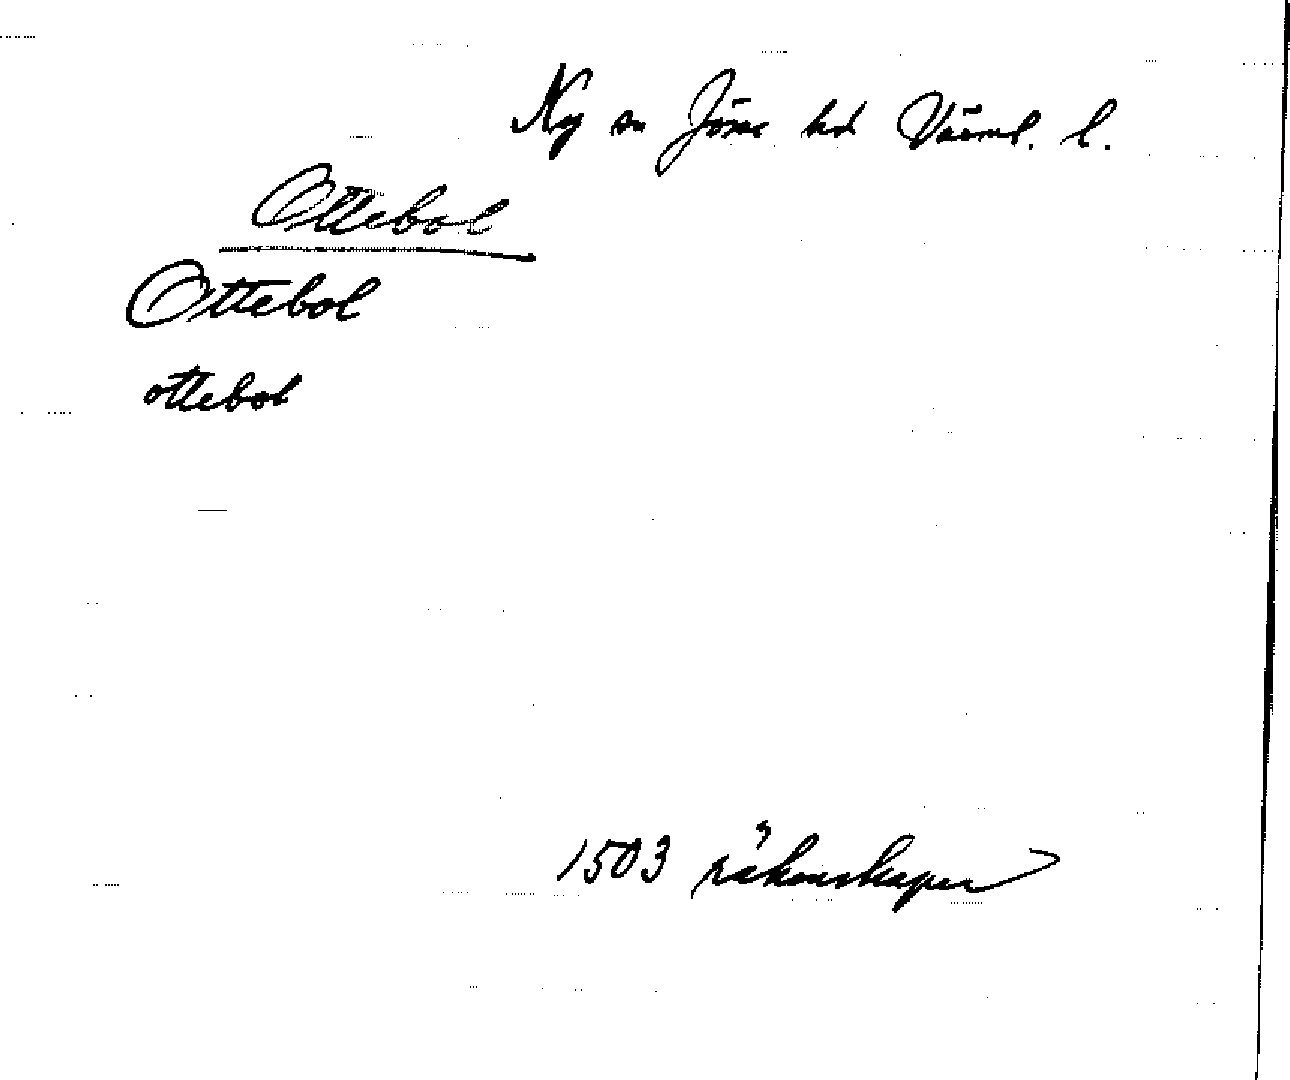 Ny sn Jösse hd Värml. l.
Ottebol
Ottebol
ottebol
1503 räkenskaper